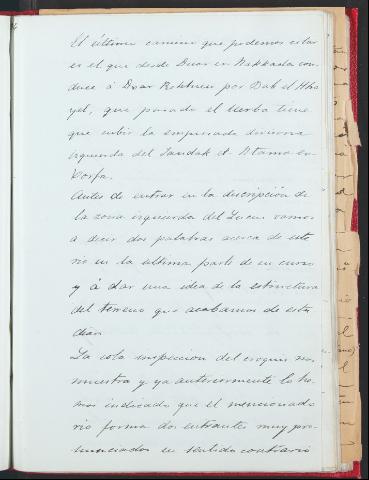 El último camino que podemos citar
es el que desde Duar en Nakkasla con
duce á Duar Rekkiues por Dab el Hha
yel, que pasado el Uerba tiene
que subir la empinada divisoria
izquierda del Jandak el Atama en
Corfa.
Antes de entrar en la descripción de
la zona izquierda del Lucus vamos
a decir dos palabras acerca de este
río en la última parte de su curso
y á dar una idea de la estructura
del terreno que acabamos de estu
diar.
La sola inspección del croquis nos
muestra y ya anteriormente lo he
mos indicado que el mencionado
río forma dos entrantes muy pro
nunciados en sentido contrario